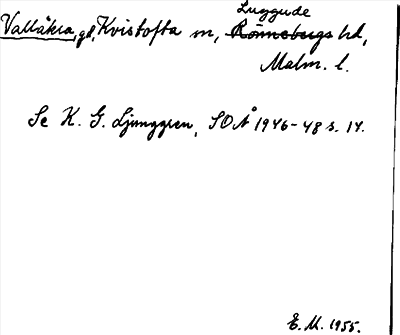 Luggude
Vallåkra, gd, Kvistofta sn, Rönnebergs hd,
Malm. l.
Se K. G. Ljunggren, SOÅ 1946-48 s. 14.
E. M. 1955.